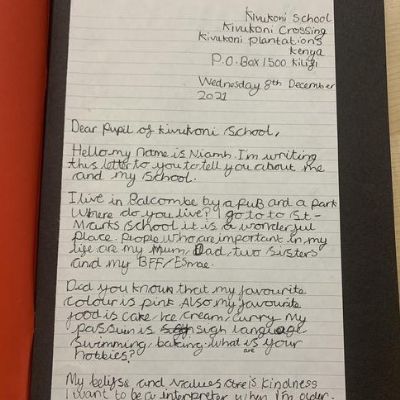 Kivukoni School
Kivukoni Crossing
Kivukoni plantations
Kenya
P.O. Box 1500 Kilifi
Wednesday 8th December
2021
Dear Pupil of Kivukoni School,
Hello my name is Niamh. I'm writing
this letter to you to tell you about me
and my school.
I live in Balcombe by a pub and a park
Where do you live? I go to to St-
Marks School it is a wonderful
place. People who are important in my
life are my Mum, Dad, two sisters
and my BFF/Esmae.
Did you know that my favourite
colour is pink. Also my favourite
food is cake, Ice cream, curry. My
passion is sigh language
swimming, baking. what is your
are
hobbies?
My and values are is kindness
I want to be a interpreter when I'm older.